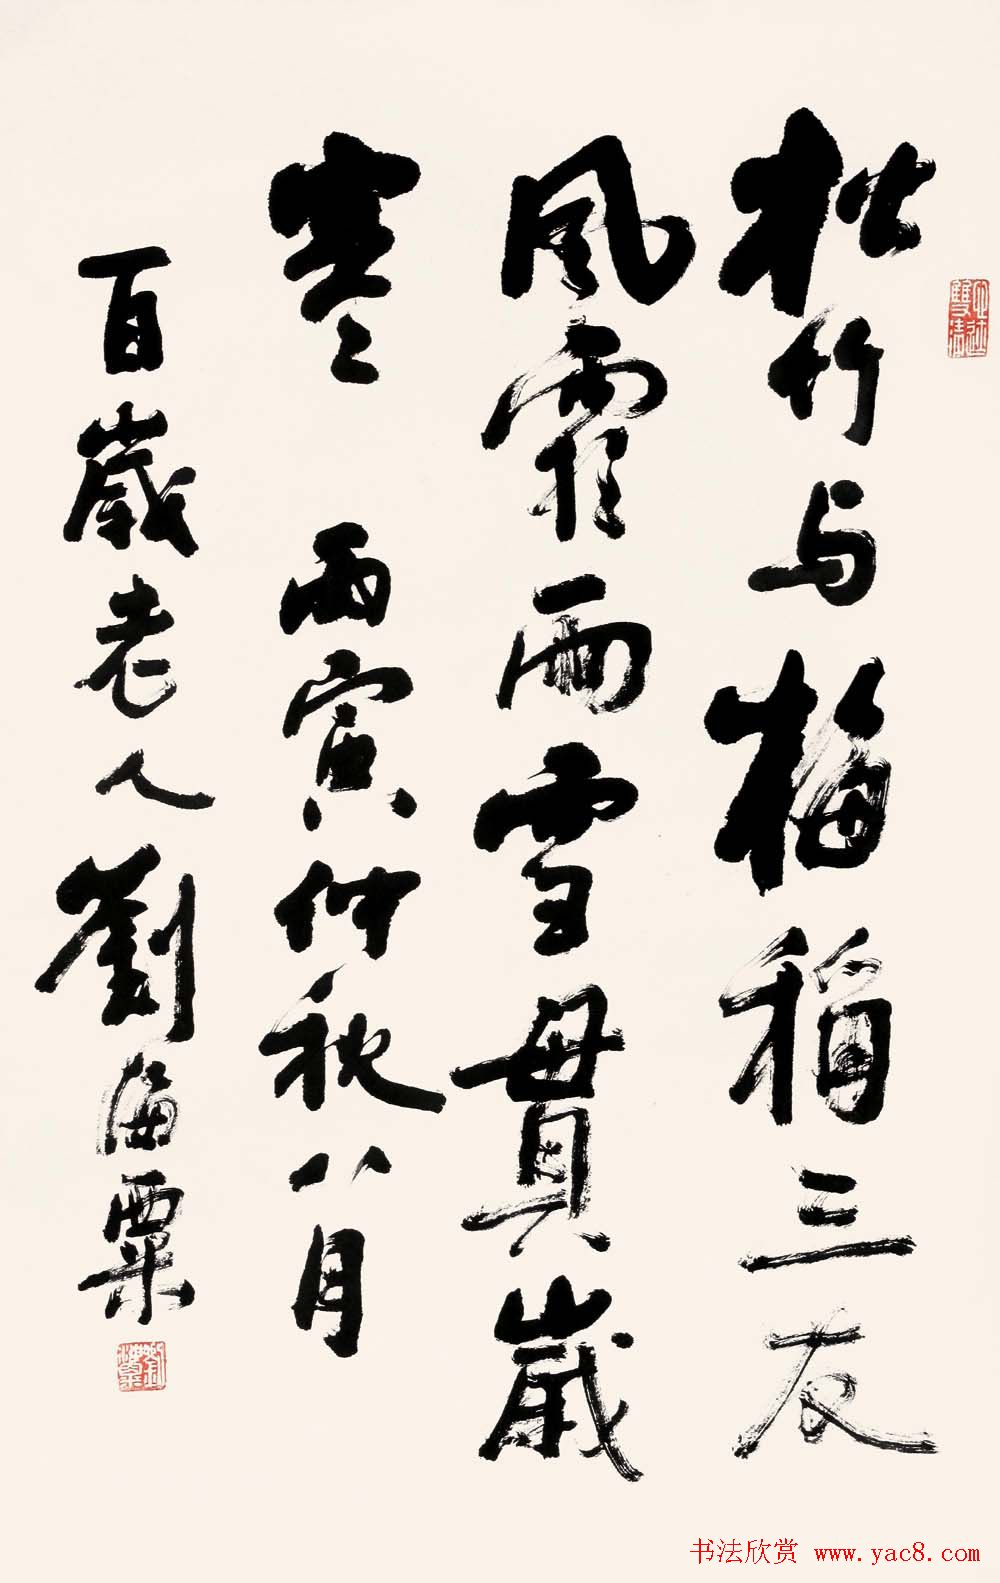 心迹雙清
松竹与梅稱三友
風霜雨雪貫歲
寒 丙寅仲秋八月
百歲老人劉海粟
书法欣赏 www.yac8.com